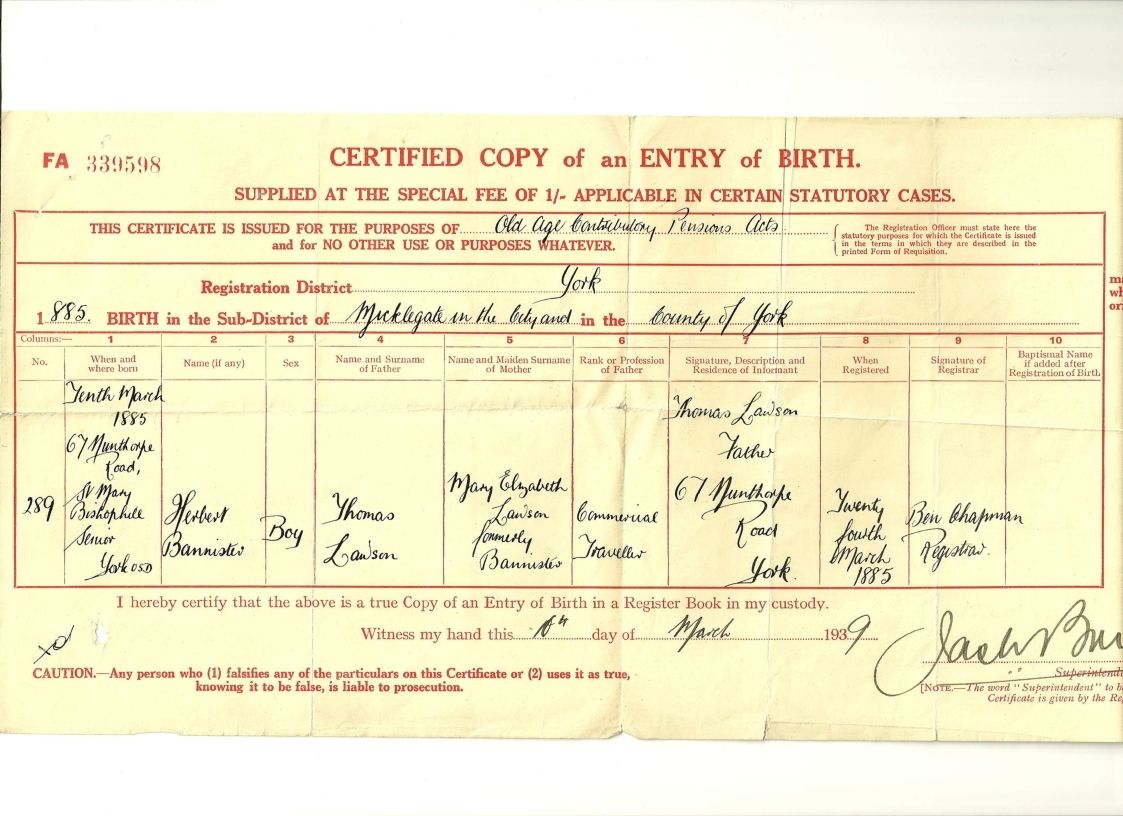 FA 339598
CERTIFIED COPY of an ENTRY of BIRTH.
SUPPLIED AT THE SPECIAL FEE OF 1/- APPLICABLE IN CERTAIN STATUTORY CASES.
THIS CERTIFICATE IS ISSUED FOR THE PURPOSES OF Old Age Contributory Pensions Acts
and for NO OTHER USE OR PURPOSES WHATEVER.
The Registration Officer must state here the
statutory purposes for which the Certificate is issued
in the terms in which they are described in the
printed Form of Requisition.
Registration District York
1885. BIRTH in the Sub-District of Micklegate in the City and in the County of York
Columns:— 1 2 3 4 5 6 7 8 9 10
No.
When and
where born
Name (if any)
Sex
Name and Surname
of Father
Name and Maiden Surname
of Mother
Rank or Profession
of Father
Signature, Description and
Residence of Informant
When
Registered
Signature of
Registrar
Baptismal Name
if added after
Registration of Birth
289
Tenth March
1885
67 Nunthorpe
Road,
St Mary
Bishophill
Senior
York OSD
Herbert
Bannister
Boy
Thomas
Lawson
Mary Elizabeth
Lawson
formerly
Bannister
Commercial
Traveller
Thomas Lawson
Father
67 Nunthorpe
Road
York.
Twenty
fourth
March
1885
Ben Chapman
Registrar.
I hereby certify that the above is a true Copy of an Entry of Birth in a Register Book in my custody.
Witness my hand this day of March 1939
Jack
Superintende
CAUTION.—Any person who (1) falsifies any of the particulars on this Certificate or (2) uses it as true,
knowing it to be false, is liable to prosecution.
[NOTE.—The word "Superintendent" to b
Certificate is given by the Re
ma
wh
or